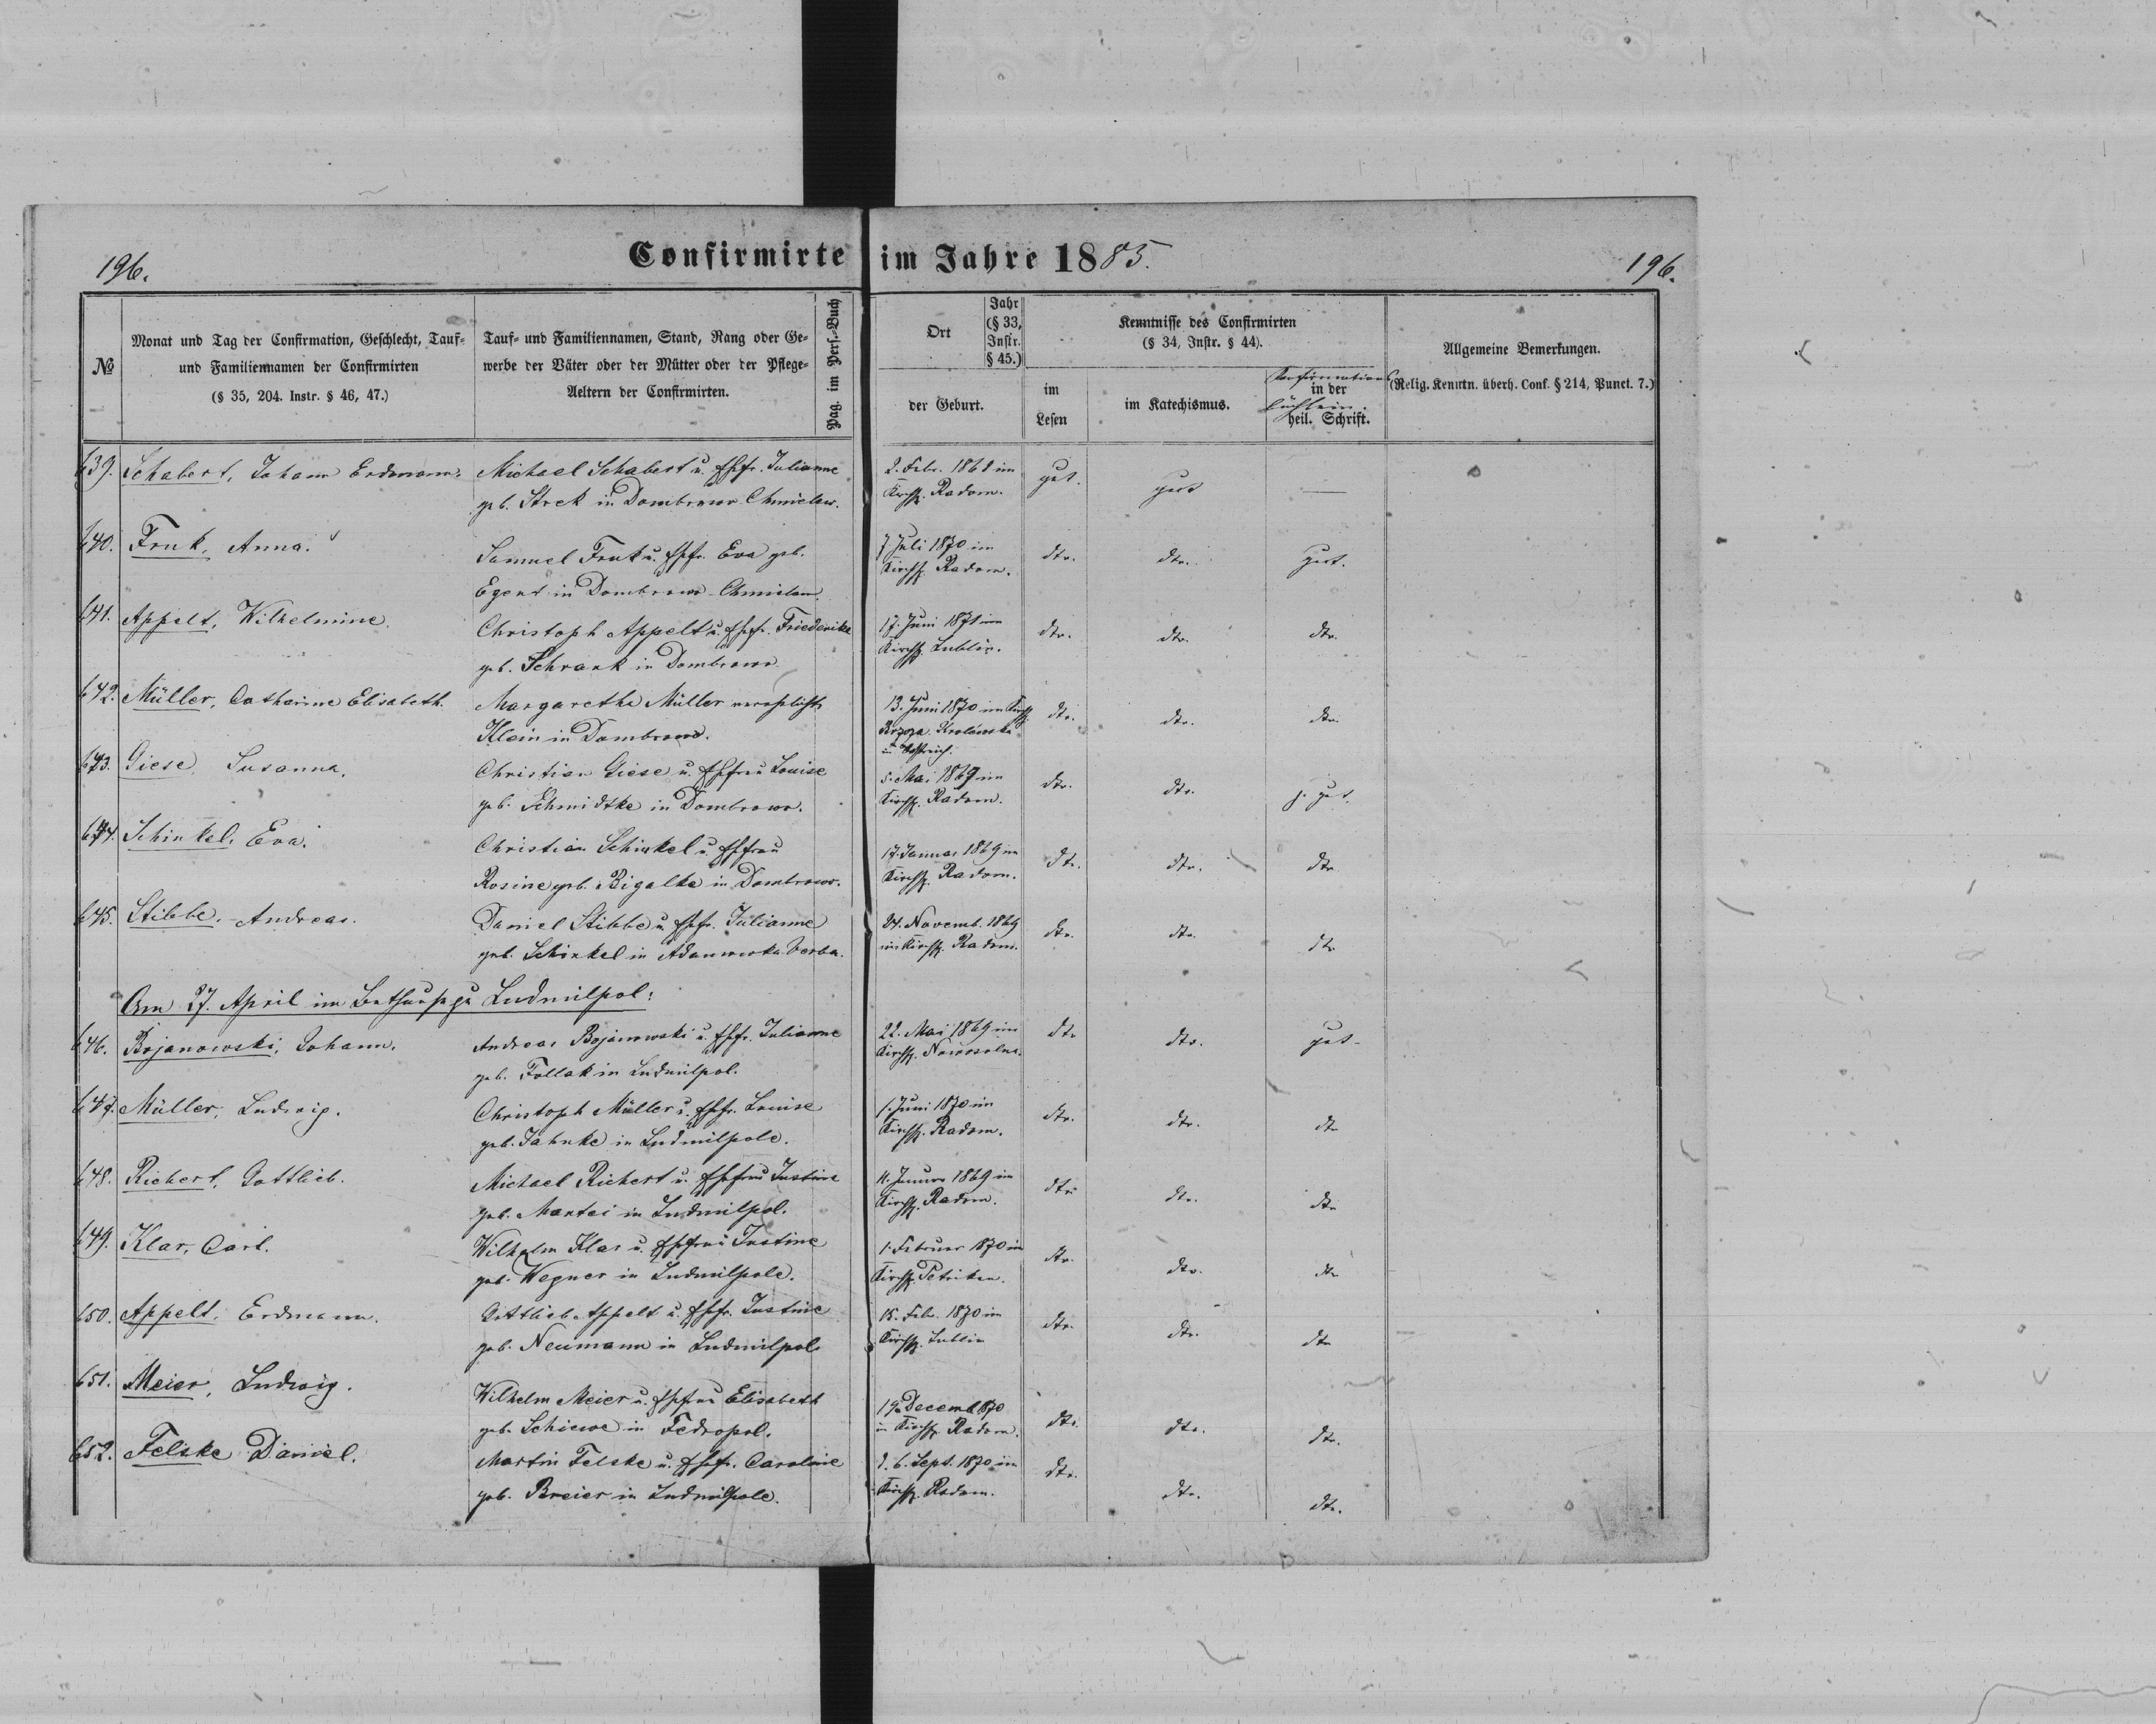 196.
Confirmirte im Jahre 1885.
196.
№
Monat und Tag der Confirmation, Geschlecht, Tauf-
und Familiennamen der Confirmirten
(§ 35, 204. Instr. § 46, 47.)
Tauf- und Familiennamen, Stand, Rang oder Ge-
werbe der Väter oder der Mütter oder der Pflege-
Aeltern der Confirmirten.
Pag. im Pers.-Buch
Ort
Jahr
(§ 33,
Instr.
§ 45.)
der Geburt.
Kenntnisse des Confirmirten
(§ 34, Instr. § 44).
im
Lesen
im Katechismus.
Confirmations
in der
büchlein.
heil. Schrift.
Allgemeine Bemerkungen.
(Relig. Kenntn. überh. Conf. § 214, Punct. 7.)
639. Schabert, Johann Erdmann. Michael Schabert u. Ehefr. Julianne 2. Febr. 1868 im gut. gut —
geb. Strek in Dombrowo Chmielow. Kirchsp. Radom.
640. Fruk, Anna. Samuel Fruk u. Ehefr. Eva geb. 7 Juli 1870 im dto. dto. gut.
in Dombrowo-Chmielow. Kirchsp. Radom.
641. Appelt, Wilhelmine. Christoph Appelt u. Ehefr. Friederike 17. Juni 1871 im dto. dto. dto.
geb. Schrank in Dombrowo Kirchsp. Lublin.
642. Müller, Catharine Elisabeth. Margarethe Müller verehelicht. 13. Juni 1870 im Kirchsp. dto. dto. dto.
Klein in Dombrowo.
in Östreich.
643. Giese, Susanna. Christian Giese u. Ehefrau Louise 5. Mai 1869 im dto. dto. s. gut.
geb. Schmidtke in Dombrowo. Kirchsp. Radom.
644. Schinkel, Eva. Christian Schinkel u. Ehefrau 17. Januar 1869 im dto. dto. dto
Rosine geb. Rigalke in Dombrowo. Kirchsp. Radom.
645. Stibbe, Andreas. Daniel Stibbe u. Ehefr. Julianne 24. Novemb. 1869 dto. dto. dto
geb. Schinkel in Adamowka Serba. im Kirchsp. Radom.
Am 27. April im Bethause zu Ludmilpol:
646. Bojanowski, Johann. Andreas Bojanowski u. Ehefr. Julianne 22. Mai 1869 im dto dto. gut
geb. Follak in Ludmilpol. Kirchsp. Nowosolna.
647. Müller, Ludwig. Christoph Müller u. Ehefr. Louise 1. Juni 1870 im dto. dto. dto
geb. Jahnke in Ludmilpole. Kirchsp. Radom.
648. Richert, Gottlieb. Michael Richert u. Ehefrau Justine 11. Januar 1869 im dto. dto. dto
geb. Mantei in Ludmilpol. Kirchsp. Radom.
649. Klar, Carl. Wilhelm Klar u. Ehefrau Justine 1. Februar 1870 im dto. dto. dto
geb. Wegner in Ludmilpole. Kirchsp. Petriken.
650. Appelt, Erdmann. Gottlieb Appelt u. Ehefr. Justine 15. Febr. 1870 im dto. dto. dto
geb. Neumann in Ludmilpol. Kirchsp. Lublin
651. Meier, Ludwig. Wilhelm Meier u. Ehefrau Elisabeth 19. Decemb. 1870 dto. dto. dto.
geb. Schiewe in Fedropol. im Kirchsp. Radom.
652. Felske Daniel. Martin Felske u. Ehefr. Caroline d. 6. Sept. 1870 im dto. dto. dto.
geb. Breier in Ludmilpole. Kirchsp. Radom.